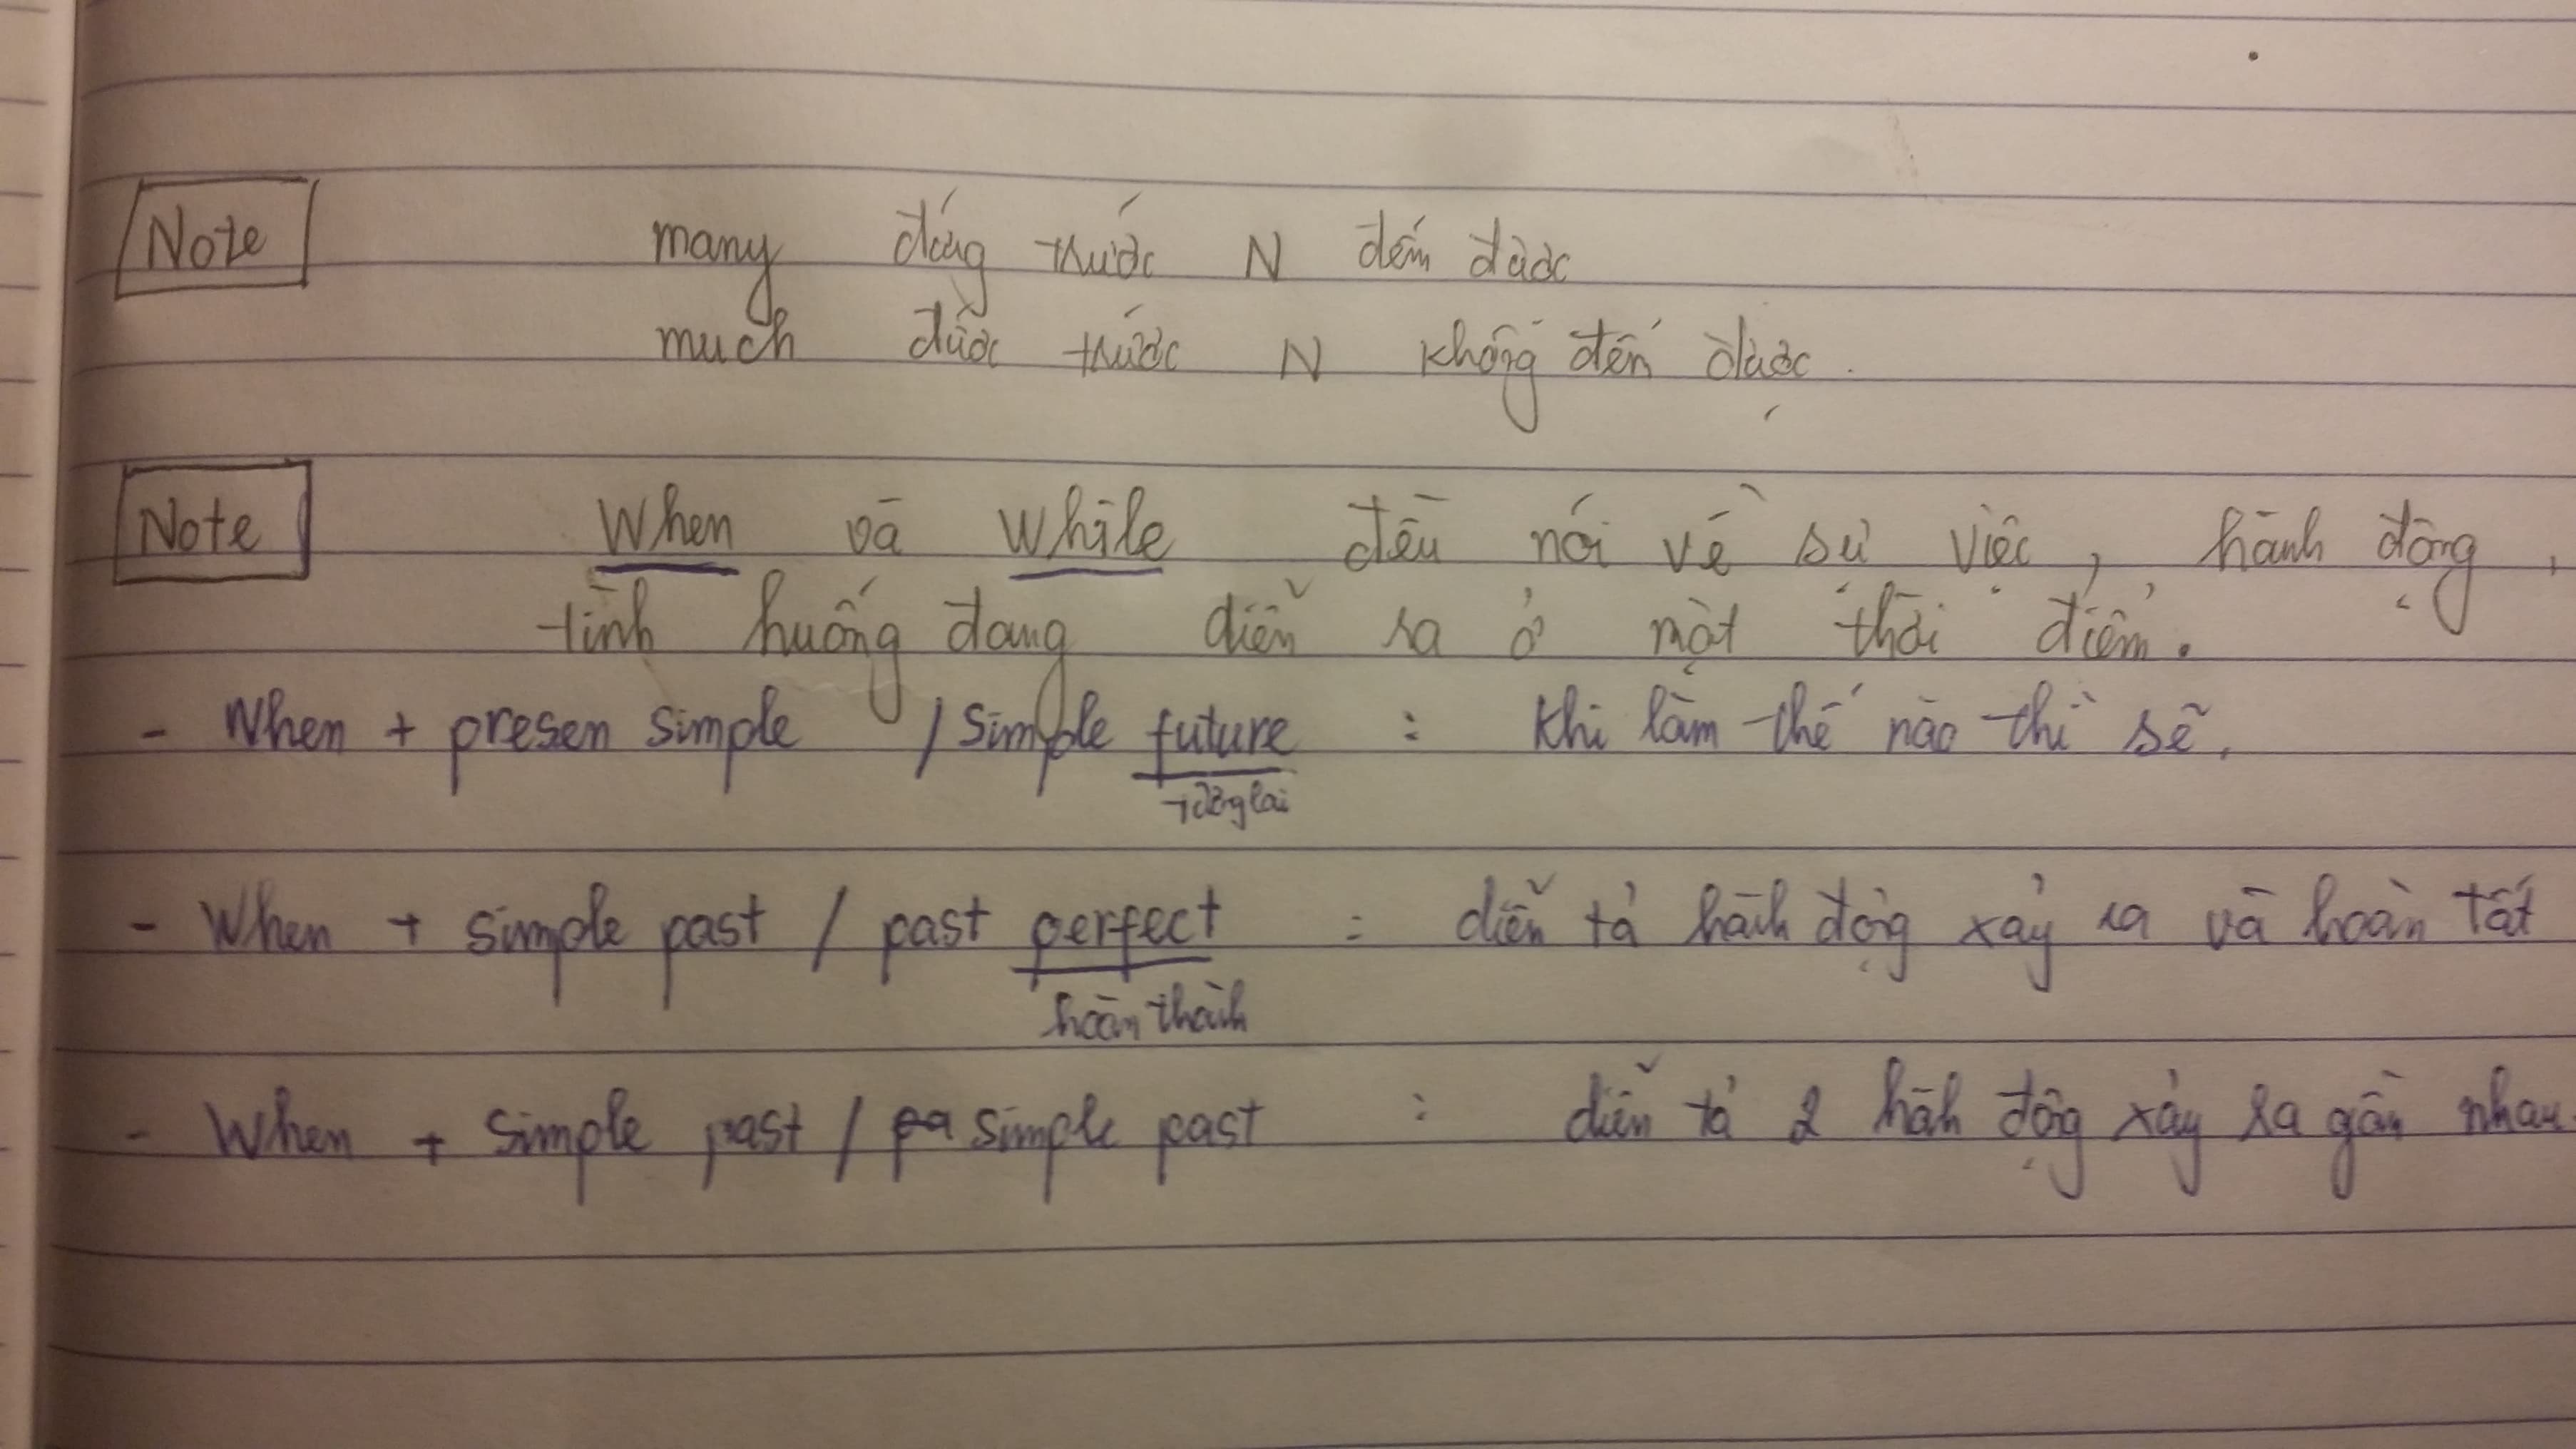 Note many đứng trước N đếm được
much được trước N không đếm được.
Note When và While đều nói về sự việc, hành động,
tình huống đang diễn ra ở một thời điểm.
- When + presen simple / simple future : khi làm thế nào thì sẽ.
tương lai
- When + simple past / past perfect : diễn tả hành động xảy ra và hoàn tất
hoàn thành
- When + simple past / pa simple past : diễn tả 2 hành động xảy ra gần nhau